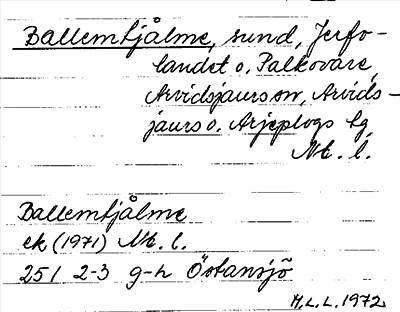 Ballemtjålme, sund, Jerfo-
landet o. Palkovare,
Arvidsjaurs sn, Arvids-
jaurs o. Arjeplogs tg,
Nb. l.
Ballemtjålme
ek (1971) Nb. l.
25 I 2-3 g-h Östansjö
H.L.L. 1972